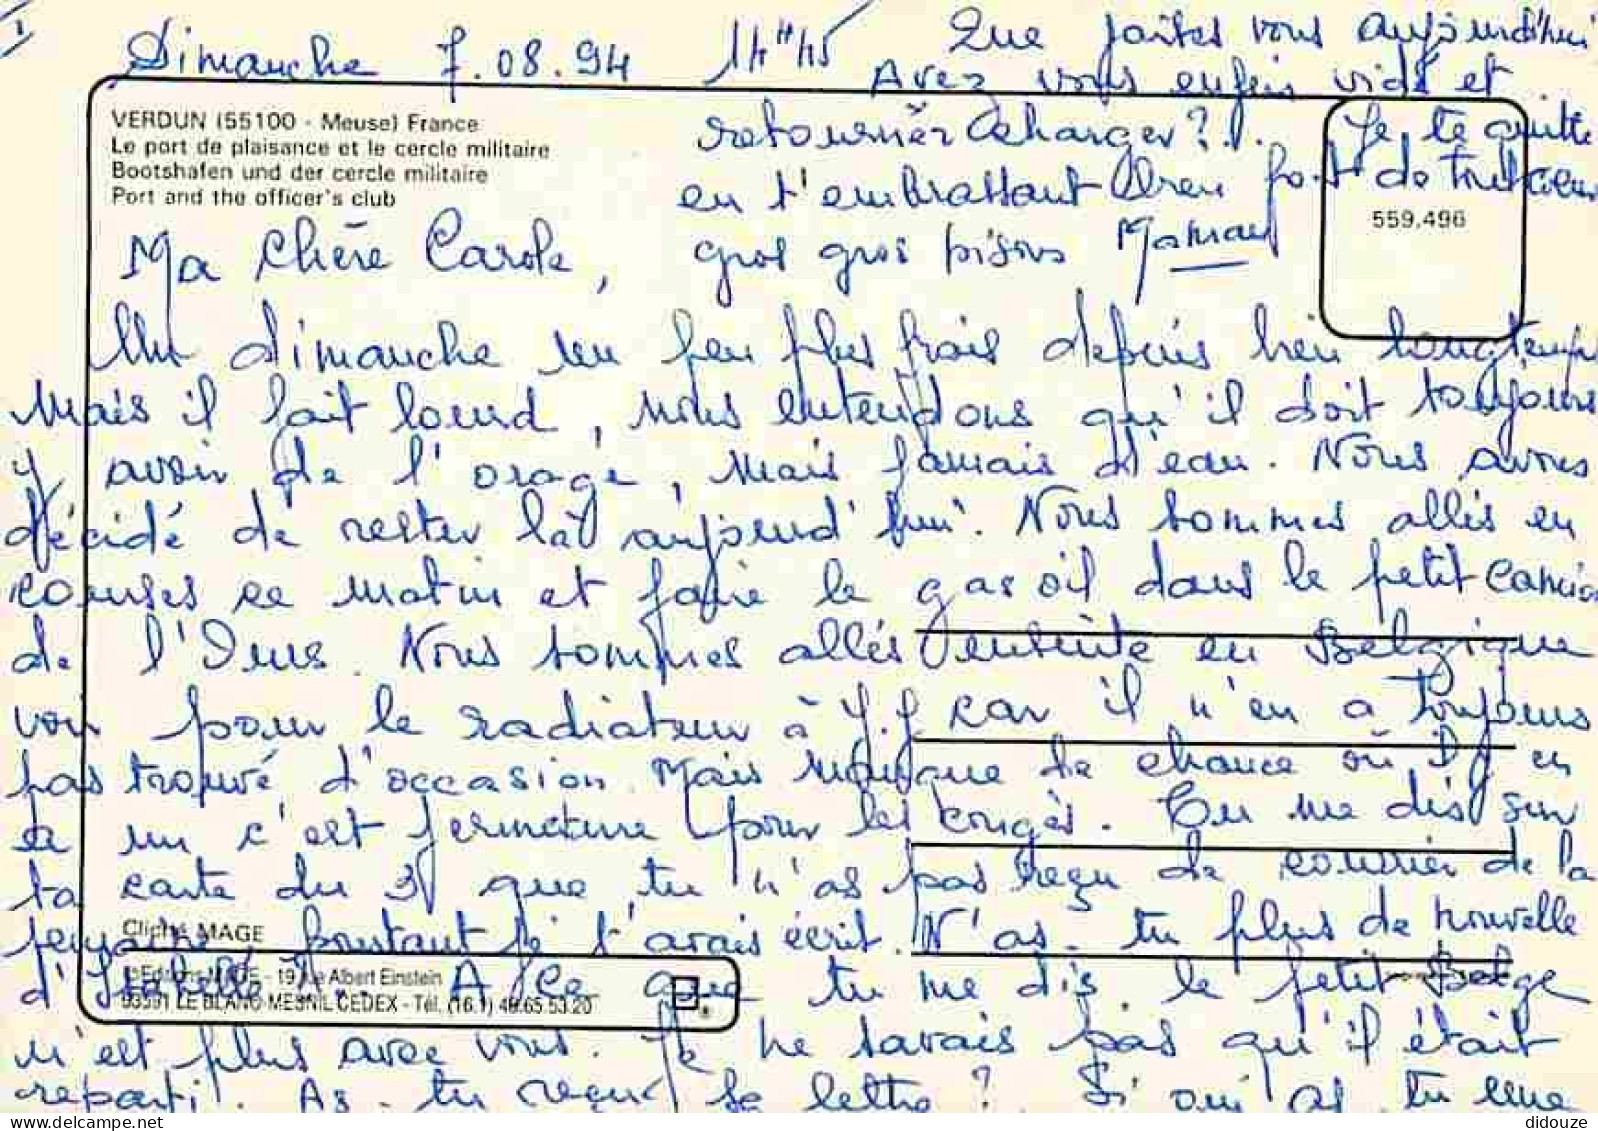 Dimanche 7.08.94 14H45
VERDUN (55100 - Meuse) France
Le port de plaisance et le cercle militaire
Bootshafen und der cercle militaire
Port and the officer's club
559.496
Ma Chère Carole,
Un dimanche un peu plus frais depuis bien longtemps
Mais il fait lourd, nous entendons qu'il doit toujours
y avoir de l'orage, mais jamais d'eau. Nous avons
décidé de rester là aujourd'hui. Nous sommes allés en
courses ce matin et faire le gas oil dans le petit camion
de l'. Nous sommes allés ensuite en Belgique
voir pour le radiateur à J.J car il n'en a toujours
pas trouvé d'occasion. Mais manque de chance où il y en
a un c'est fermeture pour les congés. Tu me dis sur
ta carte du 3 que tu n'as pas reçu de courrier de la
semaine, pourtant je t'avais écrit. N'as-tu plus de nouvelle
d'Isabelle... A ce que tu me dis le petit Belge
n'est plus avec vous. Je ne savais pas qu'il était
reparti. As-tu reçu sa lettre? Si oui as tu une
Que faites vous aujourd'hui
Avez vous enfin vidé et
retourner charger?.. Je te quitte
en t'embrassant bien fort de tout coeur
gros gros bisous Maman
Cliché MAGE
©Editions MAGE - 19, rue Albert Einstein
93591 LE BLANC MESNIL CEDEX - Tél. (16.1) 48.65.53.20
didouze